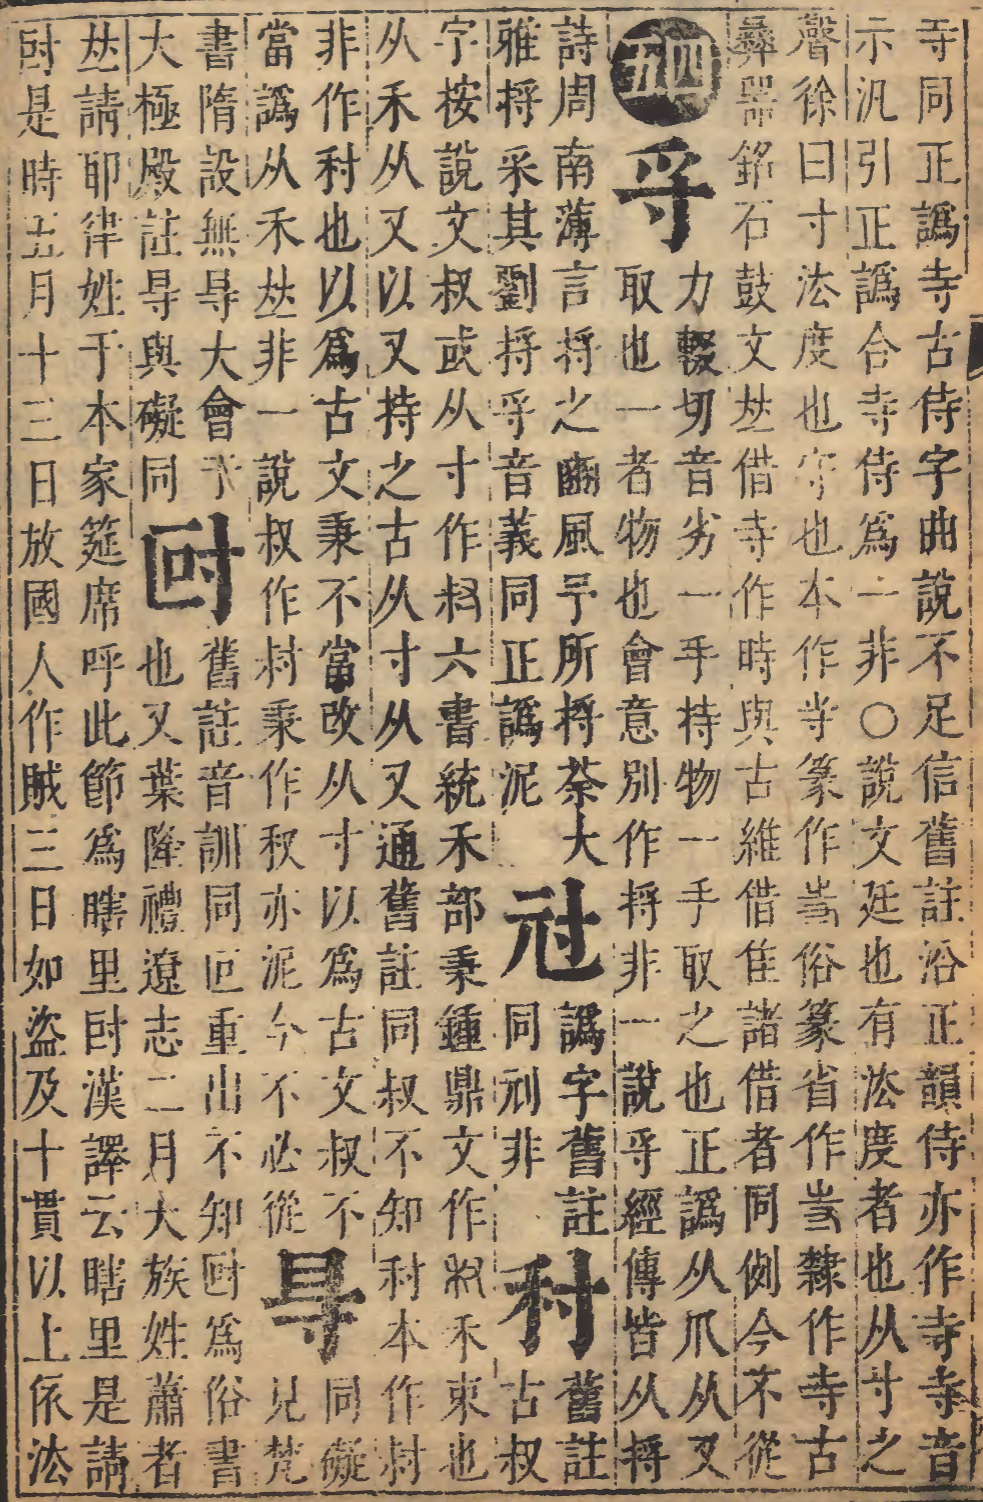 寺同正譌寺古侍字曲說不足信舊註沿正韻侍亦作寺寺音
示汎引正譌合寺侍爲一非○說文廷也有法度者也从寸之
聲徐曰寸法度也守也本作篆作俗篆省作隸作寺古
彝器銘石鼓文𠀤借寺作時與古維借隹諸借者同例今不從
四五
寽
力輟切音劣一手持物一手取之也正譌从爪从又
取也一者物也會意別作捋非一說寽經傳皆从捋
詩周南薄言捋之豳風予所捋荼大
雅捋采其劉捋寽音義同正譌泥
譌字舊註
同刓非
舊註
古叔
字按說文叔或从寸作𡬧六書統禾部秉鍾鼎文作禾束也
从禾从又以又持之古从寸从又通舊註同叔不知本作
非作也以爲古文秉不當改从寸以爲古文叔不
當譌从禾𠀤非一說叔作秉作亦泥今不必從
㝵
同礙
見梵
書隋設無㝵大會于
大極殿註㝵與礙同
尀
舊註音訓同叵重出不知尀爲俗書
也又葉隆禮遼志二月大族姓蕭者
𠀤請耶律姓于本家筵席呼此節爲瞎里尀漢譯云瞎里是請
尀是時五月十三日放國人作賊三日如盜及十貫以上依法